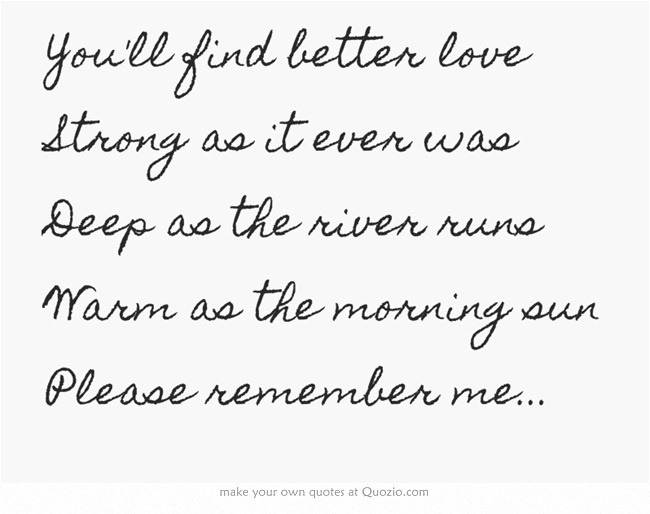 You'll find better love
Strong as it ever was
Deep as the river runs
Warm as the morning sun
Please remember me...
make your own quotes at Quozio.com